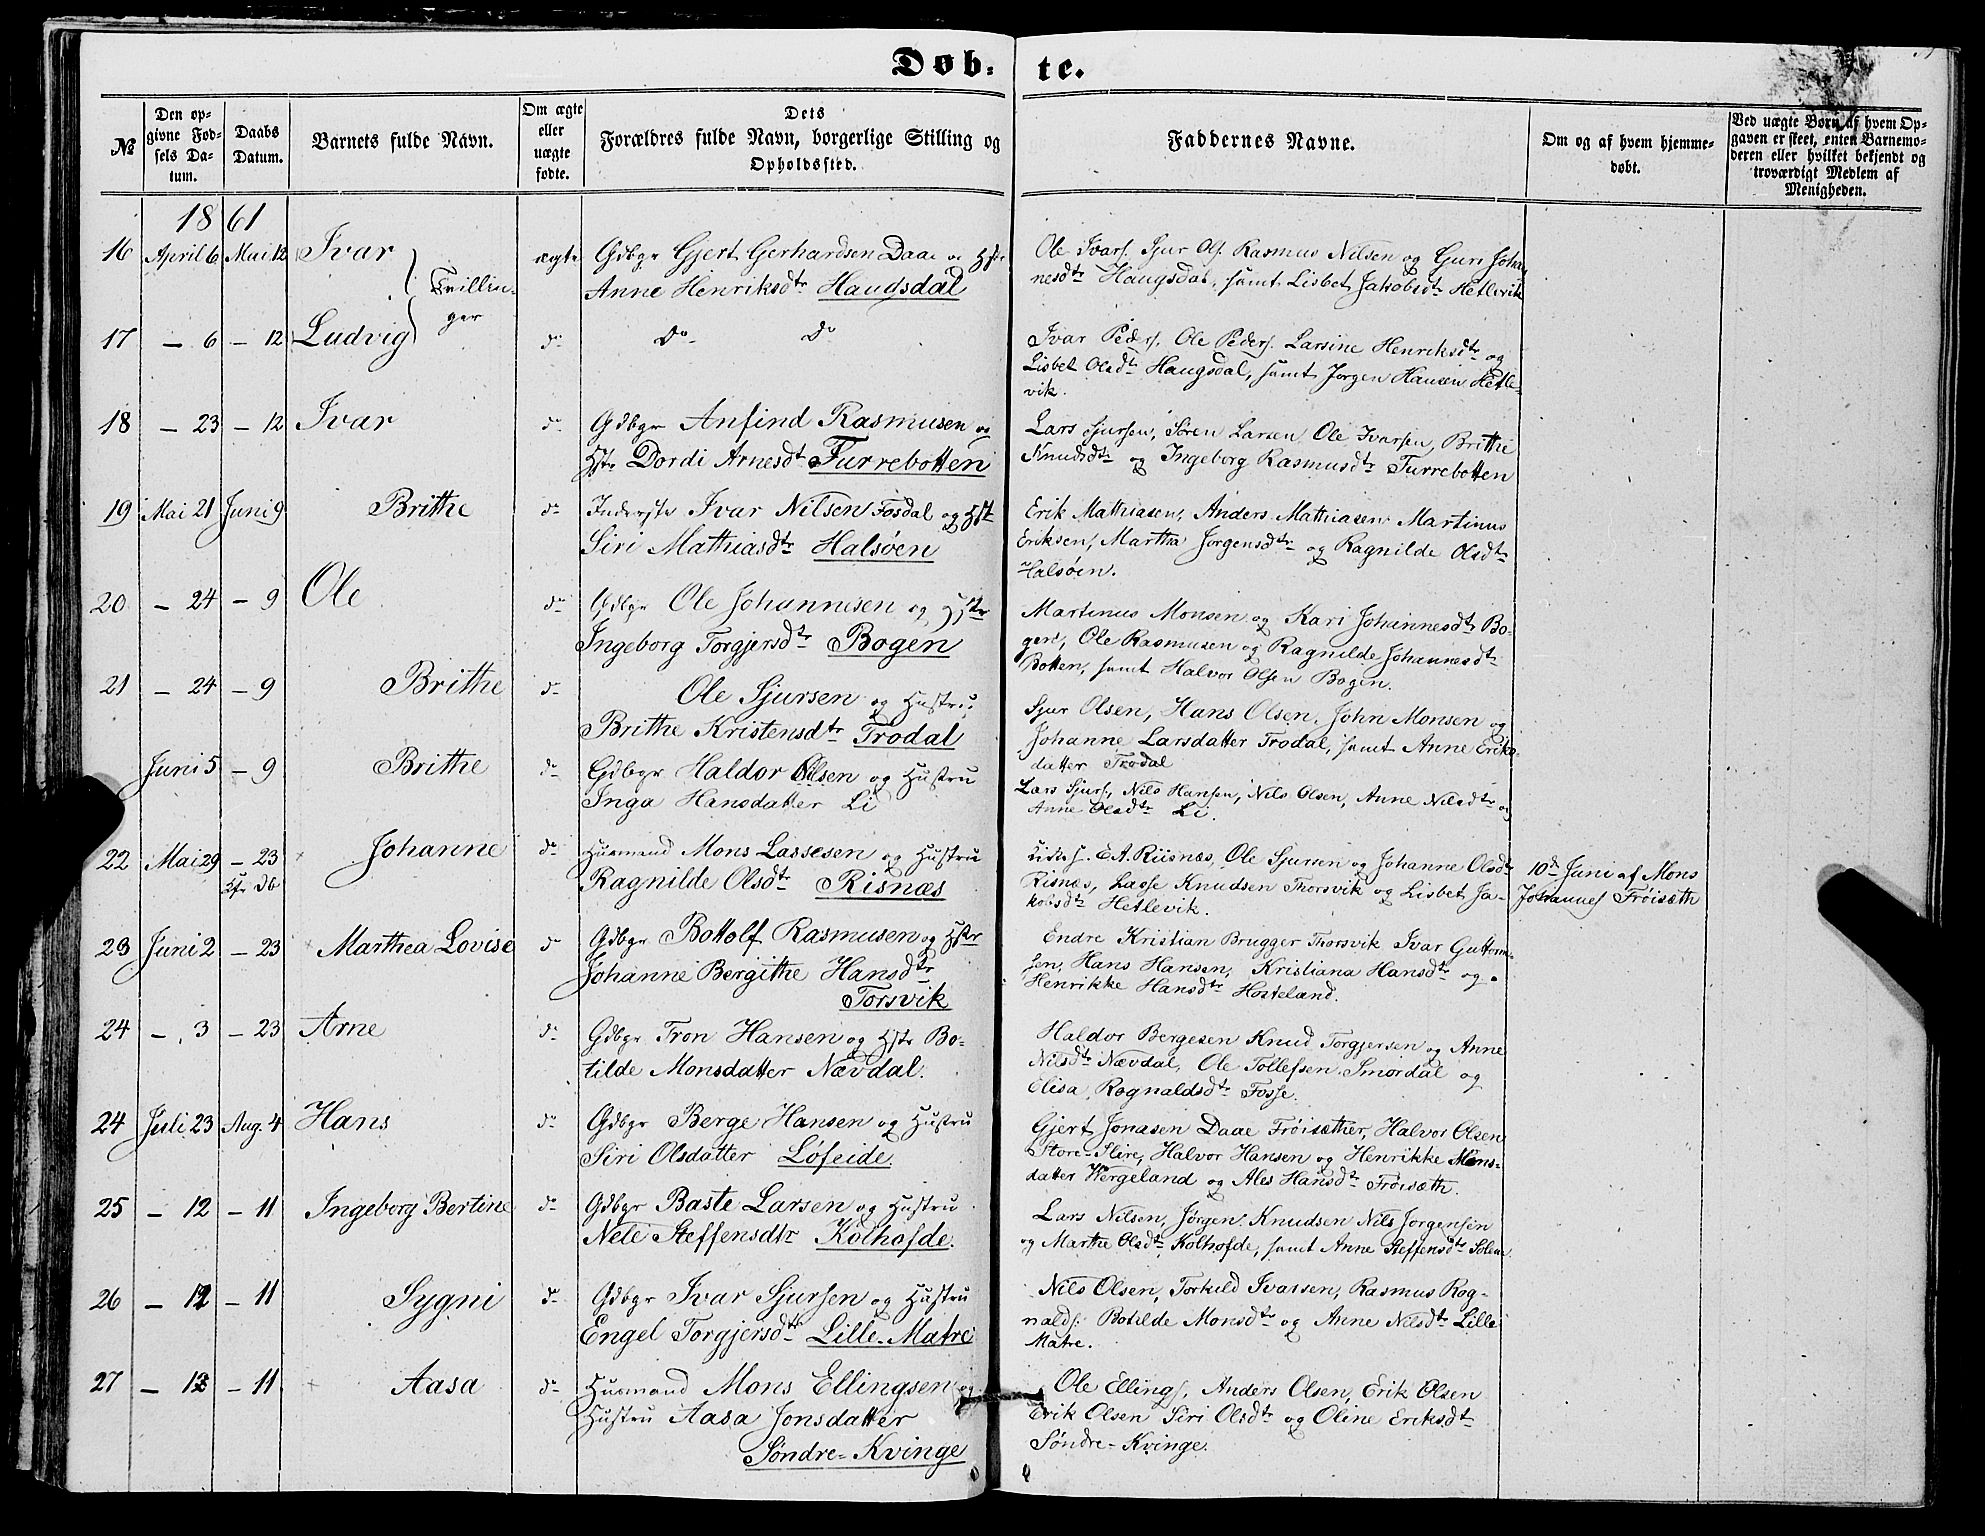 Døb-te.
№
Den opgivne Fødsels Datum.
Daabs Datum.
Barnets fulde Navn.
Om ægte eller uægte fødte.
Dets Forældres fulde Navn, borgerlige Stilling og Opholdssted.
Faddernes Navne.
Om og af hvem hjemmedøbt.
Ved uægte Børn af hvem Opgaven er skeet, enten Barnemoderen eller hvilket bekjendt og troværdigt Medlem af Menigheden.
1861
16 April 6 Mai 12 Ivar ægte Gdbgr Gjert Gerhardsen Daae og Hstr
Anne Henriksdtr Haugsdal
Ole Ivars. Sjur Ols. Rasmus Nilsen og Guri Johan
nesdtr Haugsdal, samt Lisbet Jakobsdtr Hetlevik
Tvillin-
ger
17 — 6 — 12 Ludvig do do do
Ivar Peders. Ole Peders. Larsine Henriksdtr og
Lisbet Olsdtr Haugsdal, samt Jorgen Hansen Hetle-
vik.
18 — 23 — 12 Ivar do Gdbgr Anfind Rasmusen og
Hstr Dordi Arnesdt Furrebotten
Lars Sjursen, Søren Larsen Ole Ivarsen, Brithe
Knudsdtr og Ingeborg Rasmusdtr Furrebotten
19 Mai 21 Juni 9 Brithe do Inderste Ivar Nilsen Fosdal og Hstr
Siri Mathiasdtr Halsøen
Erik Mathiasen, Anders Mathiasen Martinus
Eriksen, Martha Jorgensdtr og Ragnilde Olsdtr
Halsøen.
20 — 24 — 9 Ole do Gdbgr Ole Johannesen og Hstr
Ingeborg Torgjersdtr Bogen
Martinus Monsen og Kari Johannesdtr Bo-
gen, Ole Rasmusen og Ragnilde Johannesdtr
Botten, samt Halvor Olsen Bogen.
21 — 24 — 9 Brithe do Ole Sjursen og Hustru
Brithe Kristensdtr Trodal
Sjur Olsen, Hans Olsen, John Monsen og
Johanne Larsdatter Trodal, samt Anne Eriks
datter Trodal
Juni 5 — 9 Brithe do Gdbgr Haldor Olsen og Hustru
Inga Hansdatter Li
Lars Sjurs, Nils Hansen, Nils Olsen, Anne Nilsdtr og
Anne Olsdtr Li.
22 Mai 29 — 23 Johanne do Husmand Mons Lassesen og Hustru
Ragnilde Olsdtr Risnæs
E.A. Riisnæs, Ole Sjursen og Johanne Olsdtr
Risnæs, Lasse Knudsen Thorsvik og Lisbet Ja-
kobsdtr Hetlevik.
10de Juni af Mons
Johannes Frøisæth
23 Juni 2 — 23 Marthea Lovise do Gdbgr Bottolf Rasmusen og Hstr
Johanne Bergithe Hansdtr
Torsvik
Endre Kristian Brugger Thorsvik Ivar Guttorm-
sen, Hans Hansen, Kristiana Hansdtr og
Henrikke Hansdtr Hosteland.
24 — 3 — 23 Arne do Gdbgr Tron Hansen og Hstr Bo-
tilde Monsdatter Nævdal.
Haldor Bergesen Knud Torgjersen og Anne
Nilsdtr Nævdal, Ole Tollefsen Smørdal og
Elisa Rognaldsdtr Fosse.
24 Juli 23 Aug. 4 Hans do Gdbgr Berge Hansen og Hustru
Siri Olsdatter Løfeide.
Gjert Jonasen Daae Frøisæther, Halvor Olsen
Store-Slire, Halvor Hansen og Henrikke Mons-
datter Wergeland og Ales Hansdtr Frøisæth.
25 — 12 — 11 Ingeborg Bertine do Gdbgr Baste Larsen og Hustru
Nele Steffensdtr Kolhofde.
Lars Nilsen, Jørgen Knudsen Nils Jorgensen
og Marthe Olsdtr Kolhofde, samt Anne Steffensdtr
26 — 12 — 11 Sygni do Gdbgr Ivar Sjursen og Hustru
Engel Torgjersdtr Lille-Matre
Nils Olsen, Torkild Ivarsen, Rasmus Rog-
nalds. Botilde Monsdtr og Anne Nilsdtr Lille
Matre.
27 — 12 — 11 Aasa do Husmand Mons Ellingsen og
Hustru Aasa Jonsdatter
Søndre-Kvinge
Ole Ellings, Anders Olsen, Erik Olsen
Erik Olsen Siri Olsdtr og Oline Eriksdtr
Søndre-Kvinge.